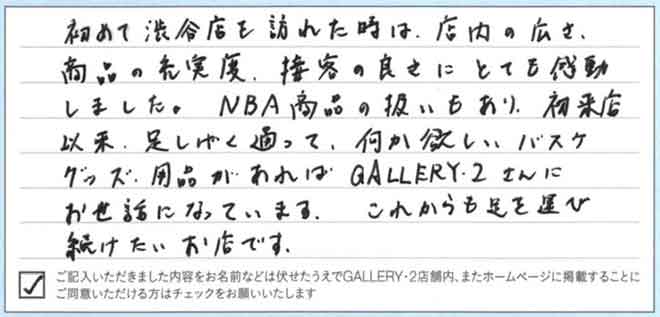 初めて渋谷店を訪れた時は、店内の広さ、
商品の充実度、接客の良さにとても感動
しました。 NBA商品の扱いもあり、初来店
以来、足しげく通って、何か欲しいバスケ
グッズ、用品があれば GALLERY・2 さんに
お世話になっています。 これからも足を運び
続けたいお店です。
ご記入いただきました内容をお名前などは伏せたうえでGALLERY・2店舗内、またホームページに掲載することに
ご同意いただける方はチェックをお願いいたします